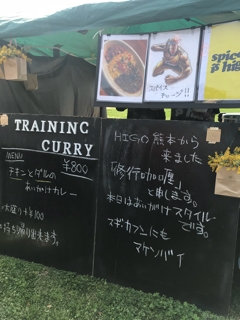 spice
TRAINING
CURRY
MENU ¥800
チキンとダルの
あいがけカレー
大盛り+¥100
HIGO 熊本から
来ました
「修行咖喱」
と申します。
本日はあいがけスタイル
です。
スギカフンにも
マケンバイ